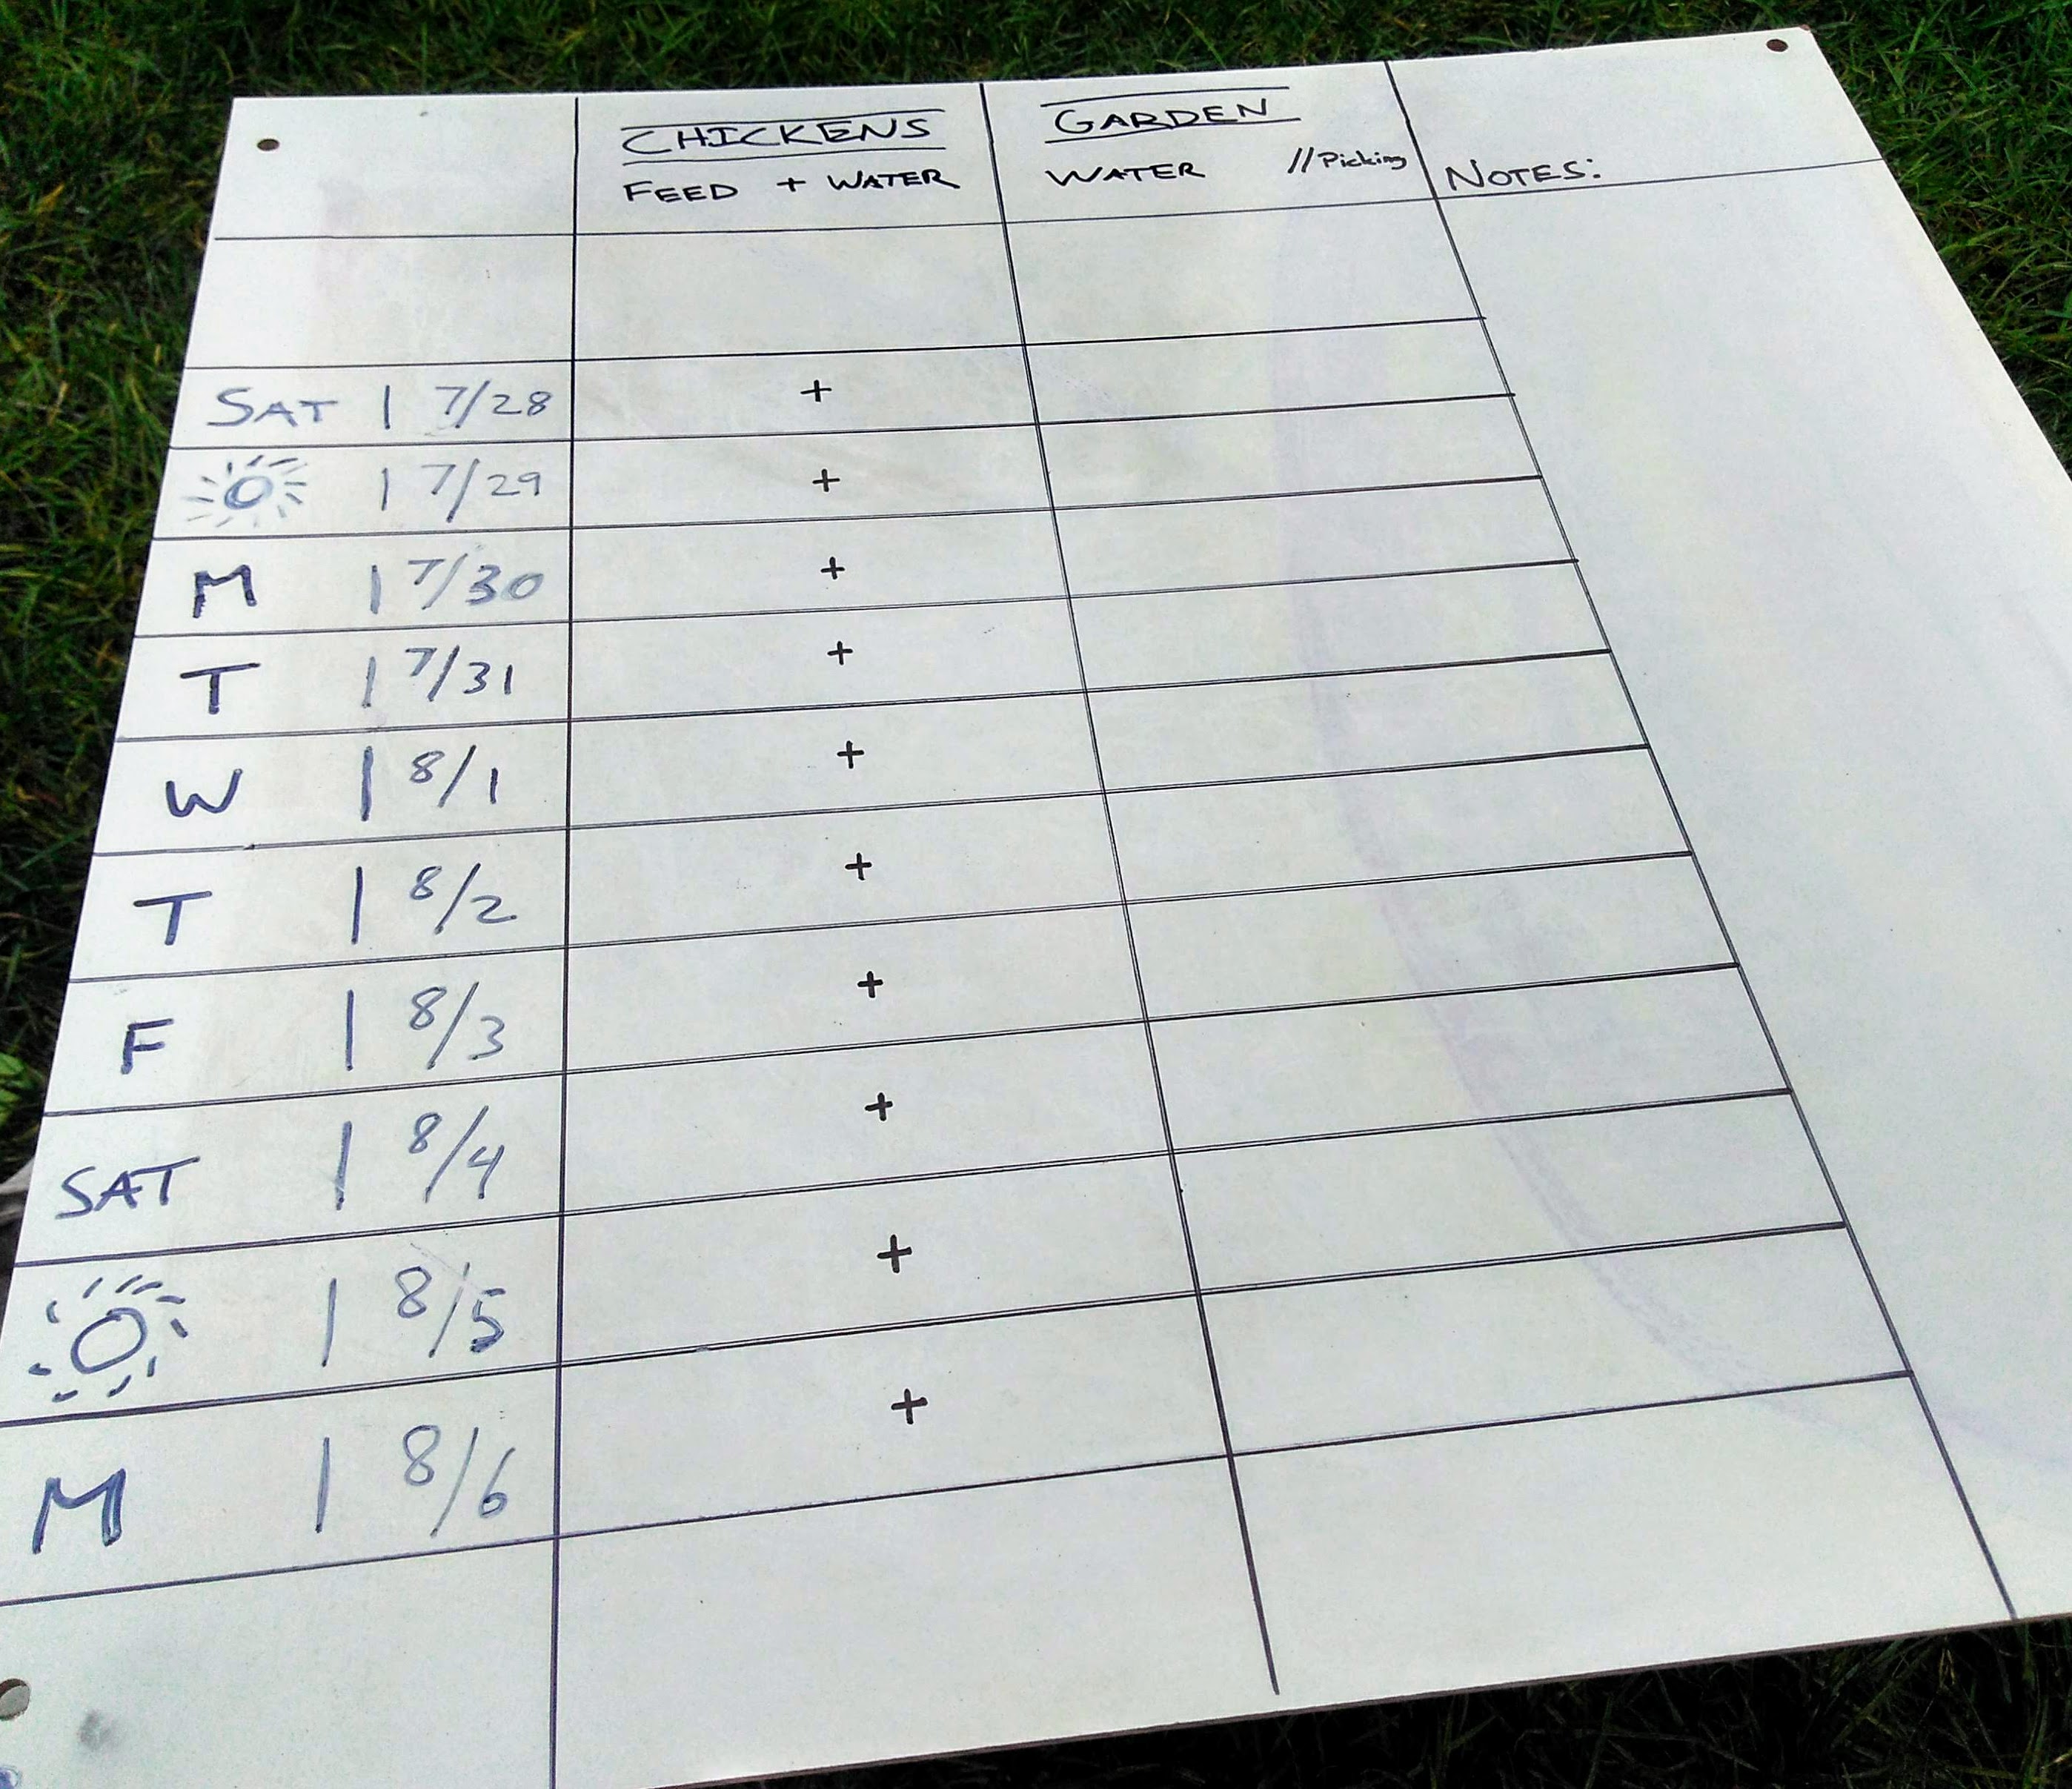 CHICKENS GARDEN
FEED + WATER WATER //Picking NOTES:
SAT | 7/28 +
| 7/29 +
M | 7/30 +
T | 7/31 +
W | 8/1 +
T | 8/2 +
F | 8/3 +
SAT | 8/4 +
| 8/5 +
M | 8/6 +